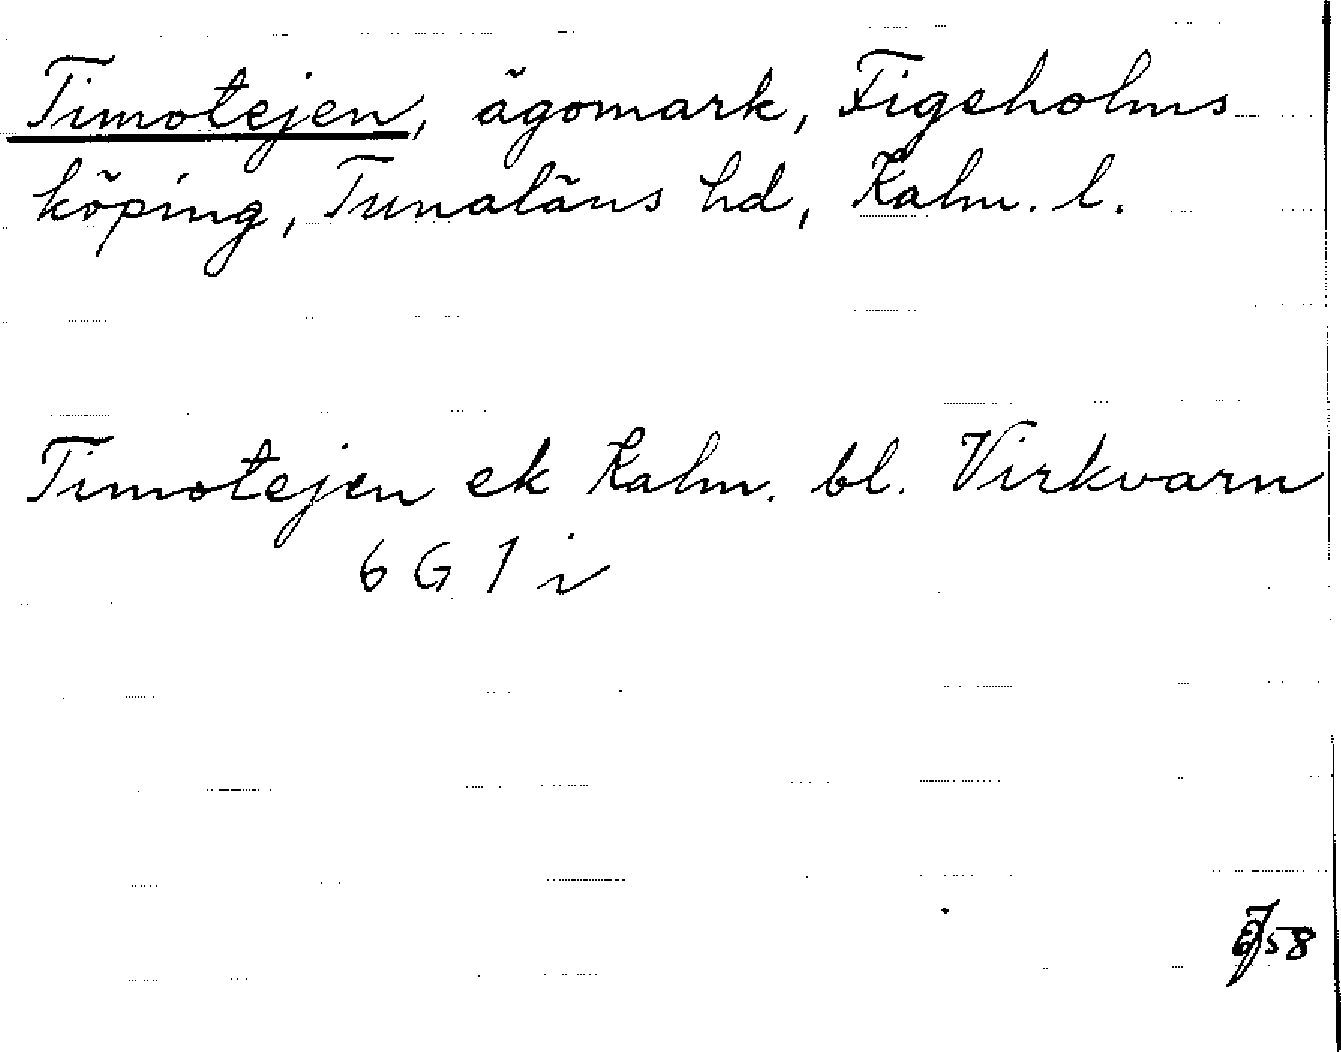 Timotejen, ägomark, Figeholms
köping, Tunaläns hd, Kalm. l.
Timotejen ek Kalm. bl. Virkvarn
6 G 1 i
58